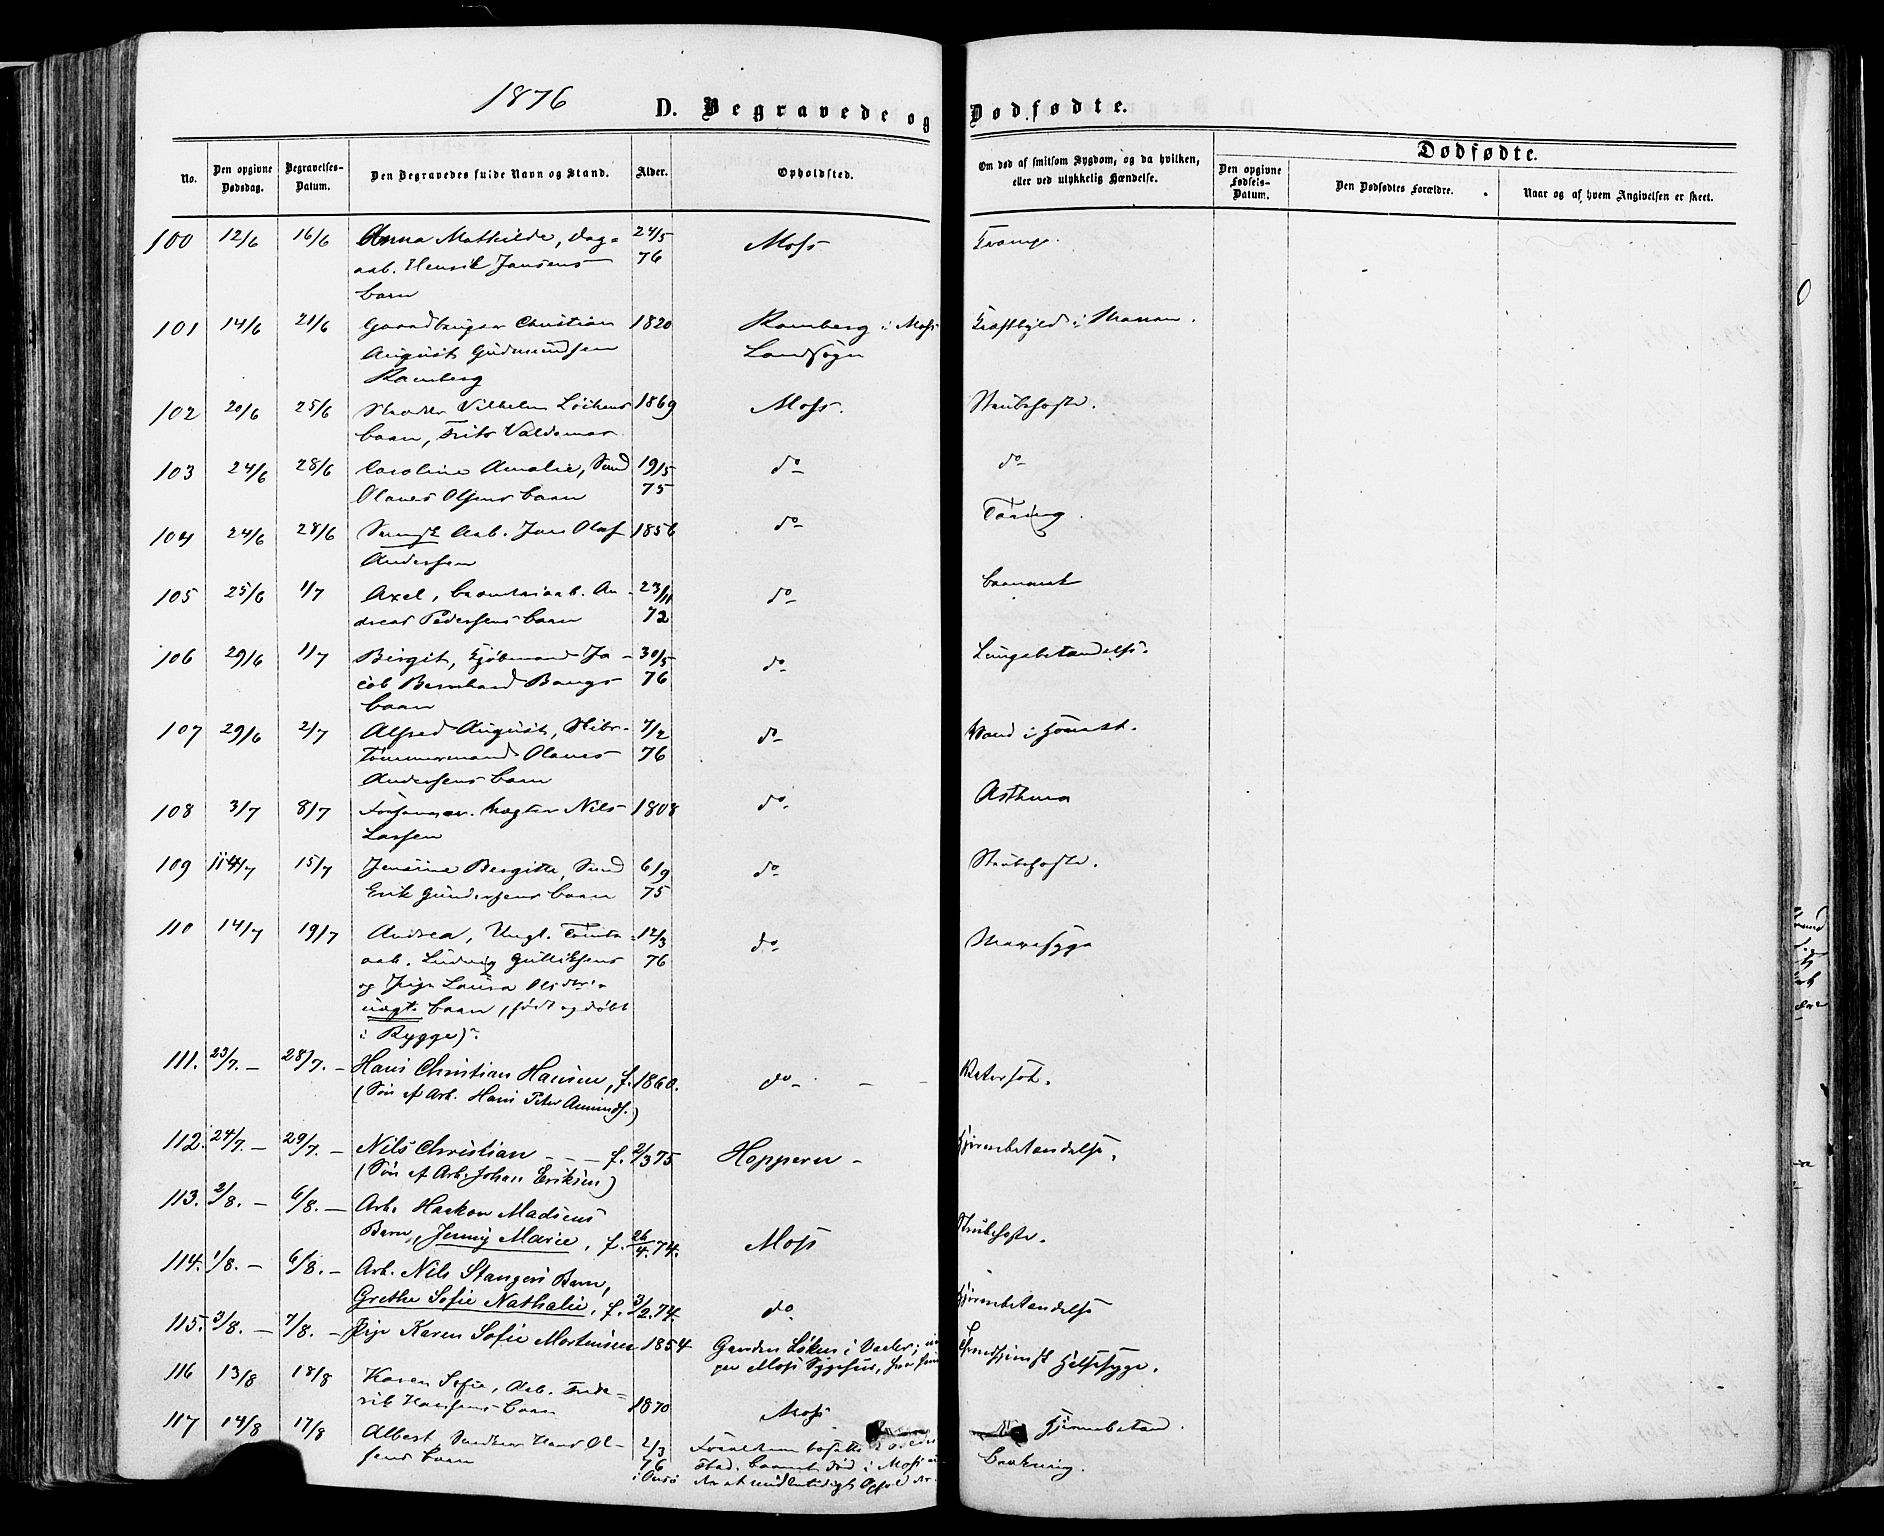 1876
D. Begravede og Dødfødte.
No.
Den opgivne Dødsdag.
Begravelses-Datum.
Den Begravedes fulde Navn og Stand.
Alder.
Opholdsted.
Om død af smitsom Sygdom, og da hvilken, eller ved ulykkelig Hændelse.
Dødfødte.
Den opgivne Fødsels-Datum.
Den Dødfødtes Forældre.
Naar og af hvem Angivelsen er skeet.
100 12/6 16/6 Anna Mathilde, Dag- 24/5 Moss
aab. Henrik Jansens 76
barn
101 14/6 21/6 Gaardbruger Christian 1820 Ramberg i Moss
August Gudmundsen Landsogn
Ramberg
102 20/6 25/6 Vilhelm Löikens 1869 Moss. Strubehoste.
barn, Frits Valdemar
103 24/6 28/6 Caroline Amalie, 19/5 do do
Olaves Olsens barn 75
104 24/6 28/6 Aab. Jons Olaf 1856 do Tæring.
Andersen
105 25/6 1/7 Axel, aab. An- 23/11 do
dreas Pedersens barn 72
106 29/6 1/7 Birgit, Kjøbmand Ja- 30/5 do Lungebetændelse.
cob Bernhard Bangs 76
barn
107 29/6 2/7 Alfred August, Skibs- 7/2 do Vand i
Tömmermand Olaves 76
Andersens barn
108 3/7 8/7 Vægter Nils 1808 do. Asthma
Larsen
109 14/7 15/7 Jensine Bergitte, 6/9 do Strubehoste.
Erik Gundersens barn 75
110 14/7 19/7 Andrea, Ungk. Tomte- 12/3 do Mavesyge
aab. Ludvig Gulliksens 76
og Pige Laura
uægt. barn, (født og døbt
i Rygge).
111. 23/7. – 28/7. – Hans Christian Hansen, f. 1860. do – –
(Søn af Arb. Hans Peter Amunds.)
112. 24/7. – 29/7. – Nils Christian – – – f. 2/3 75 Hoppern – Hjernebetændelse.
(Søn af Arb. Johan Eriksen)
113. 2/8. – 6/8. – Arb. Haakon Madsens
Barn, Jenny Marie, f. 26/4. 74. Moss Strubehoste.
114. 1/8. – 6/8. – Arb. Nils Stangers Barn,
Grethe Sofie Nathalie, f. 3/2. 74. do Hjernebetændelse
115. 3/8. – 7/8. – Pige Karen Sofie Mortensen 1854 Gaarden Løken i Vaaler;
Moss Sygehus,
116 13/8 18/8 Karen Sofie, Arb. Frede-
rik Hansens barn 1870 Moss Hjernebetænd.
117 14/8 17/8 Albert, Hans Ol- 2/3
sens barn 76
i Onsø
barnet død i Moss